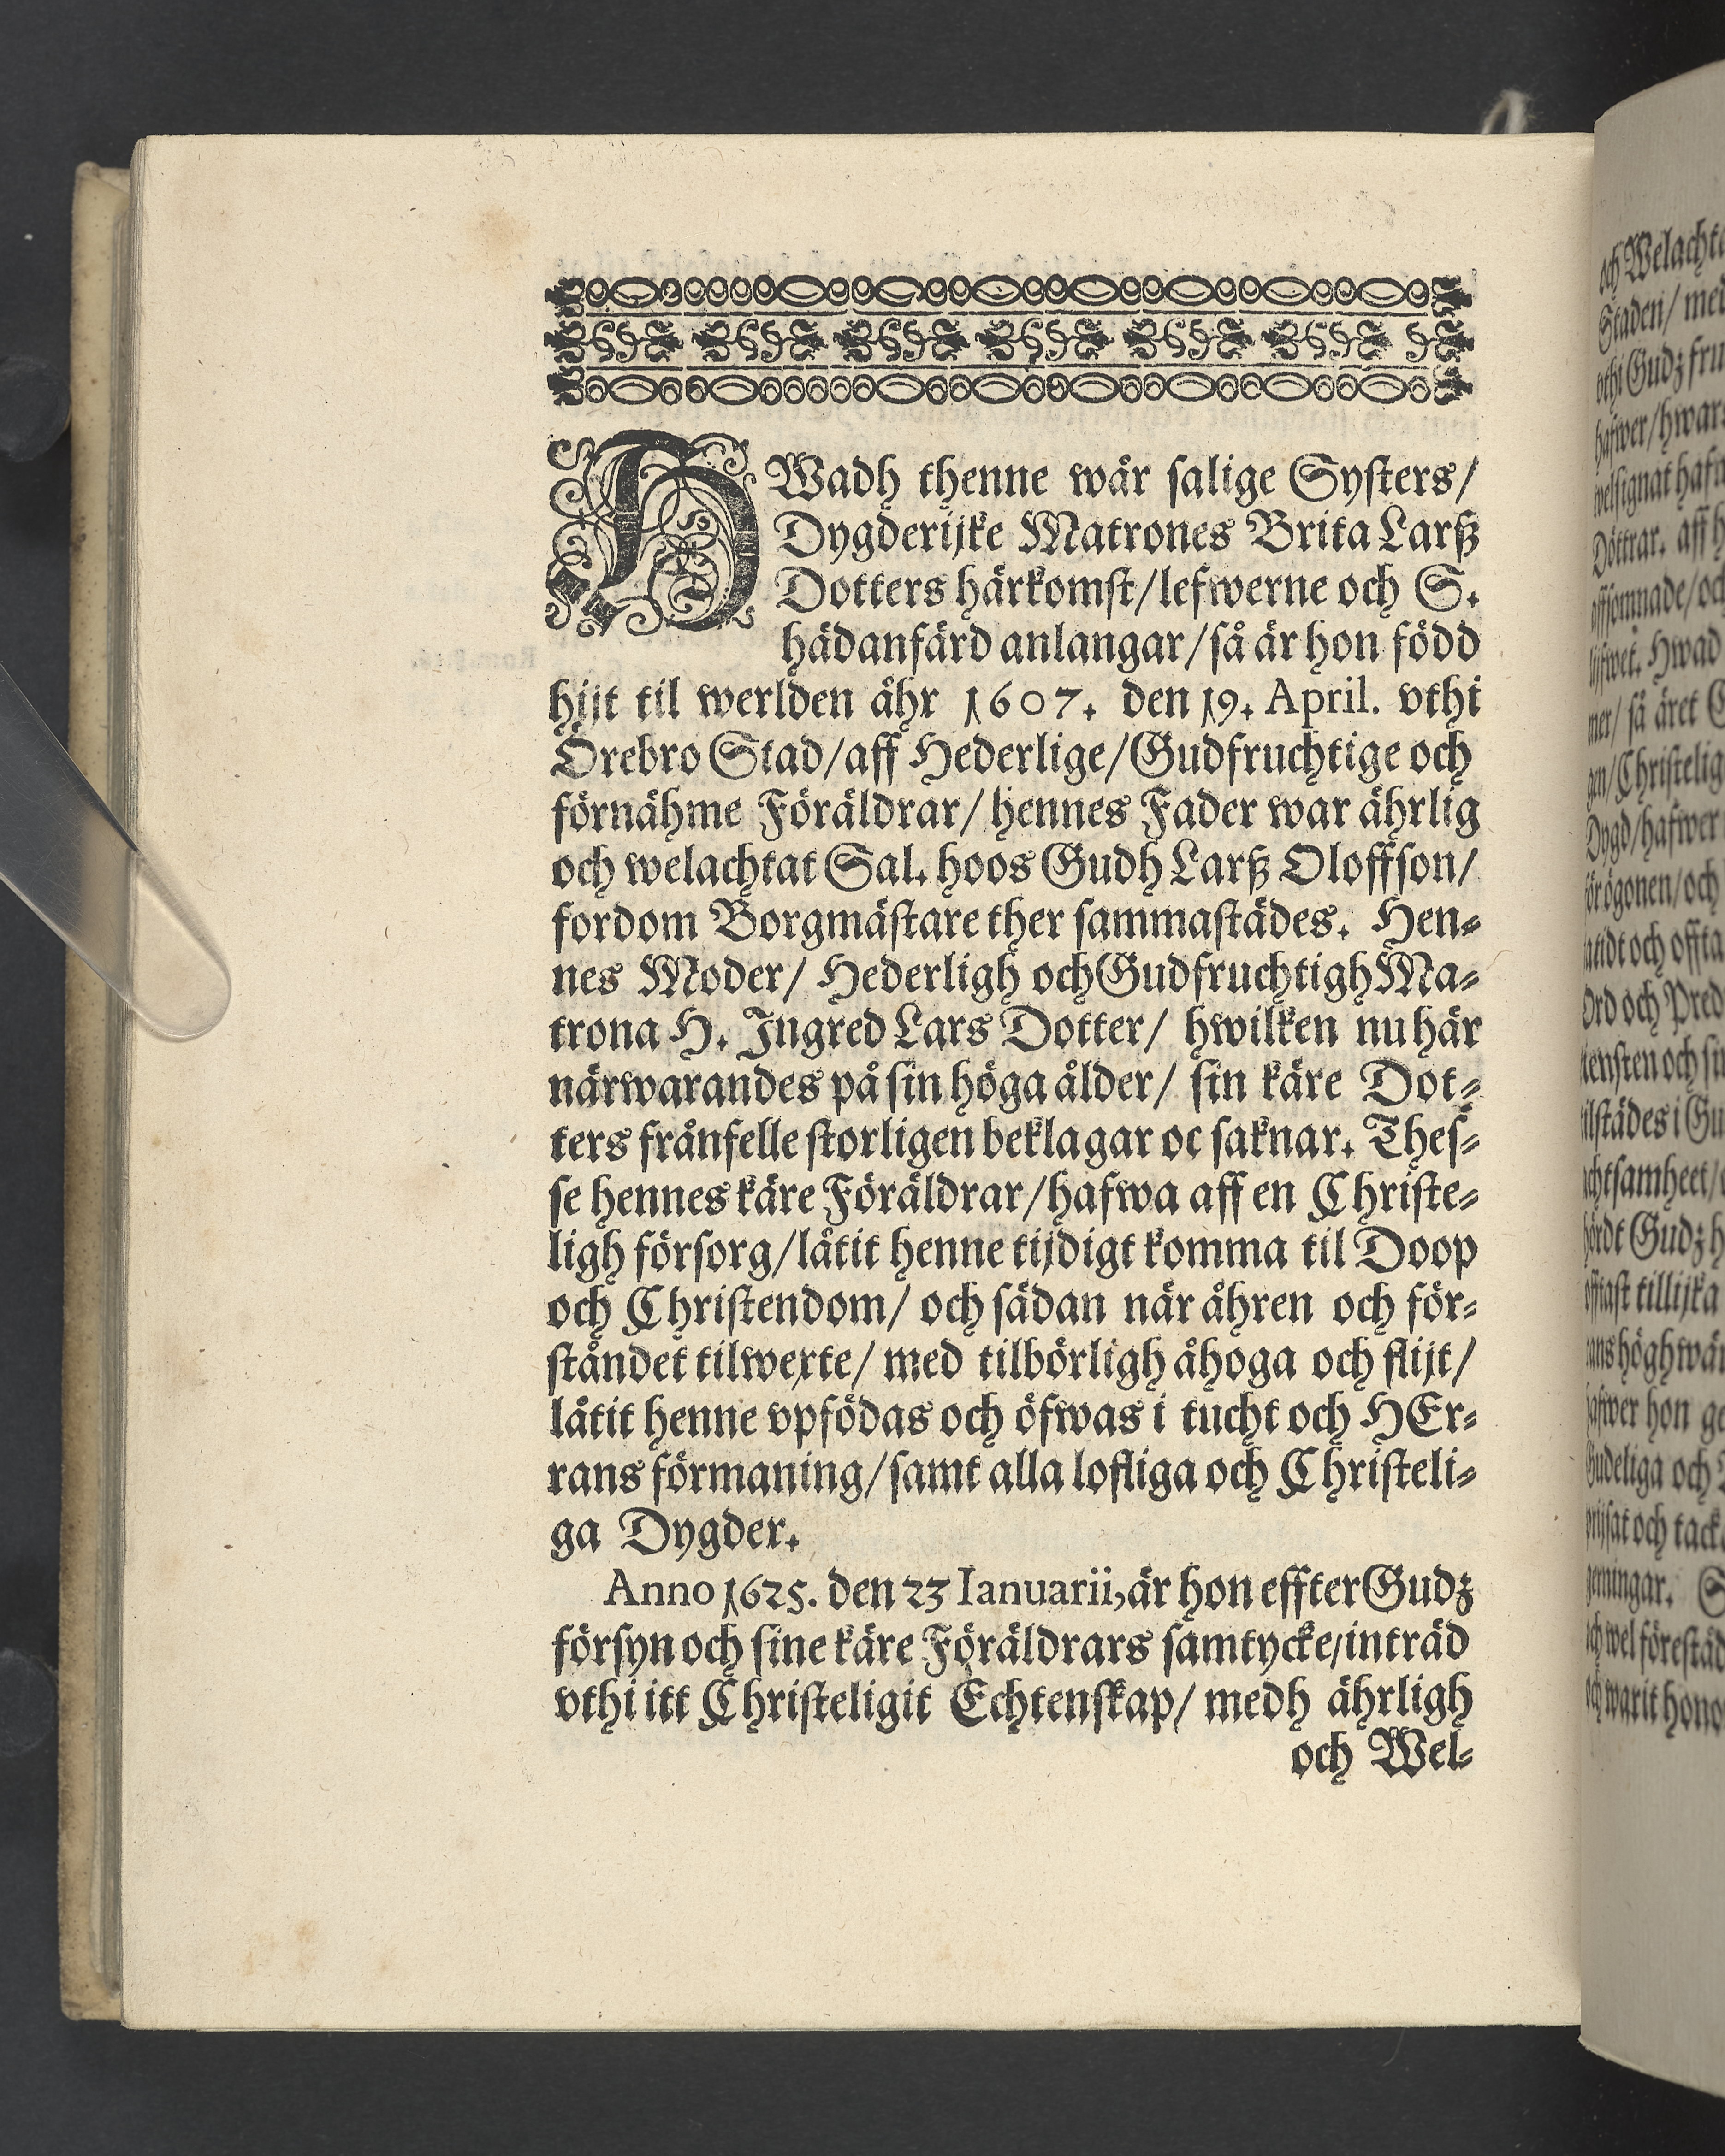 HWadh thenne wår salige Systers/
Dygderijke Matrones Brita Larß
Dotters härkomst/lefwerne och S.
hädanfärd anlangar/så är hon född
hijt til werlden åhr 1607. den 19. April. vthi
Örebro Stad/aff Hederlige/Gudfruchtige och
förnähme Föräldrar/ hennes Fader war ährlig
och welachtat Sal. hoos Gudh Larß Oloffson/
fordom Borgmästare ther sammastädes. Hen-
nes Moder/ Hederligh och Gudfruchtigh Ma-
trona H. Ingred Lars Dotter/ hwilken nu här
närwarandes på sin höga ålder/ sin käre Dot-
ters frånfelle storligen beklagar oc saknar. Thes-
se hennes käre Föräldrar/hafwa aff en Christe-
ligh försorg/låtit henne tijdigt komma til Doop
och Christendom/ och sädan när åhren och för-
ståndet tilwexte/ med tilbörligh åhoga och flijt/
låtit henne vpfödas och öfwas i tucht och HEr-
rans förmaning/samt alla lofliga och Christeli-
ga Dygder.
Anno 1625. den 23 Ianuarii, är hon effter Gudz
försyn och sine käre Föräldrars samtycke/inträd
vthi itt Christeligit Echtenskap/ medh ährligh
och Wel-
och Welachta
Staden/ med
vthi Gudz fru
hafwer/hwar
welsignat hafw
Döttrar. aff h
affsomnade/och
lijfwet. Hwad
ner/ så äret G
gen/Christelig
Dygd/hafwer
för ögonen/och
andt och offta
Ord och Pred
iensten och sin
ilstädes i Gu
achtsamheet/
hördt Gudz h
offtast tillijka
ans höghwär
hafwer hon ge
Gudeliga och
prijsat och tack
gerningar. S
ich wel förestäd
och warit hono